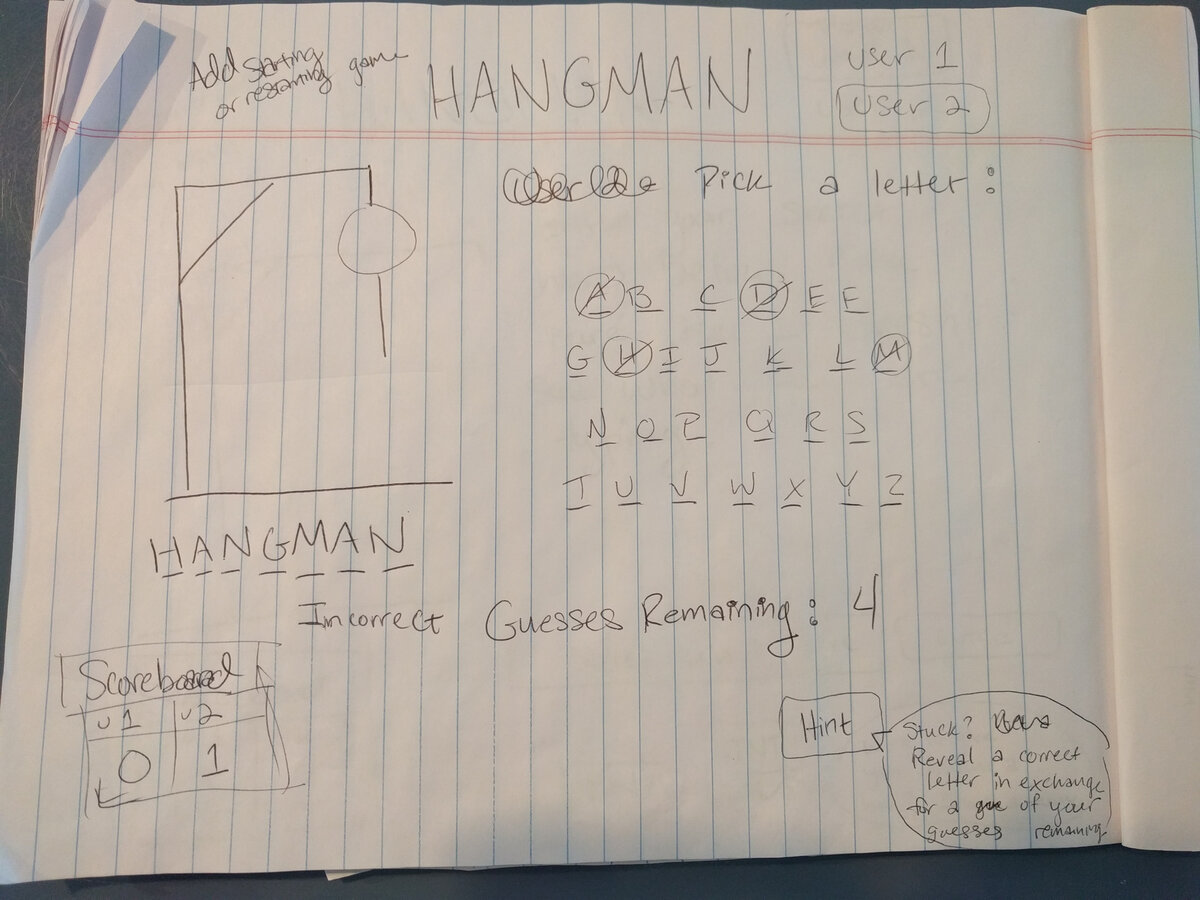 Add starting
or restarting game
HANGMAN
user 1
user 2
Pick a letter:
A B C D E E
G H I J K L M
N O P Q R S
T U V W X Y Z
HANGMAN
Incorrect Guesses Remaining: 4
Scoreboard
U1 U2
0 1
Hint
Stuck?
Reveal a correct
letter in exchange
for a of your
guesses remaining